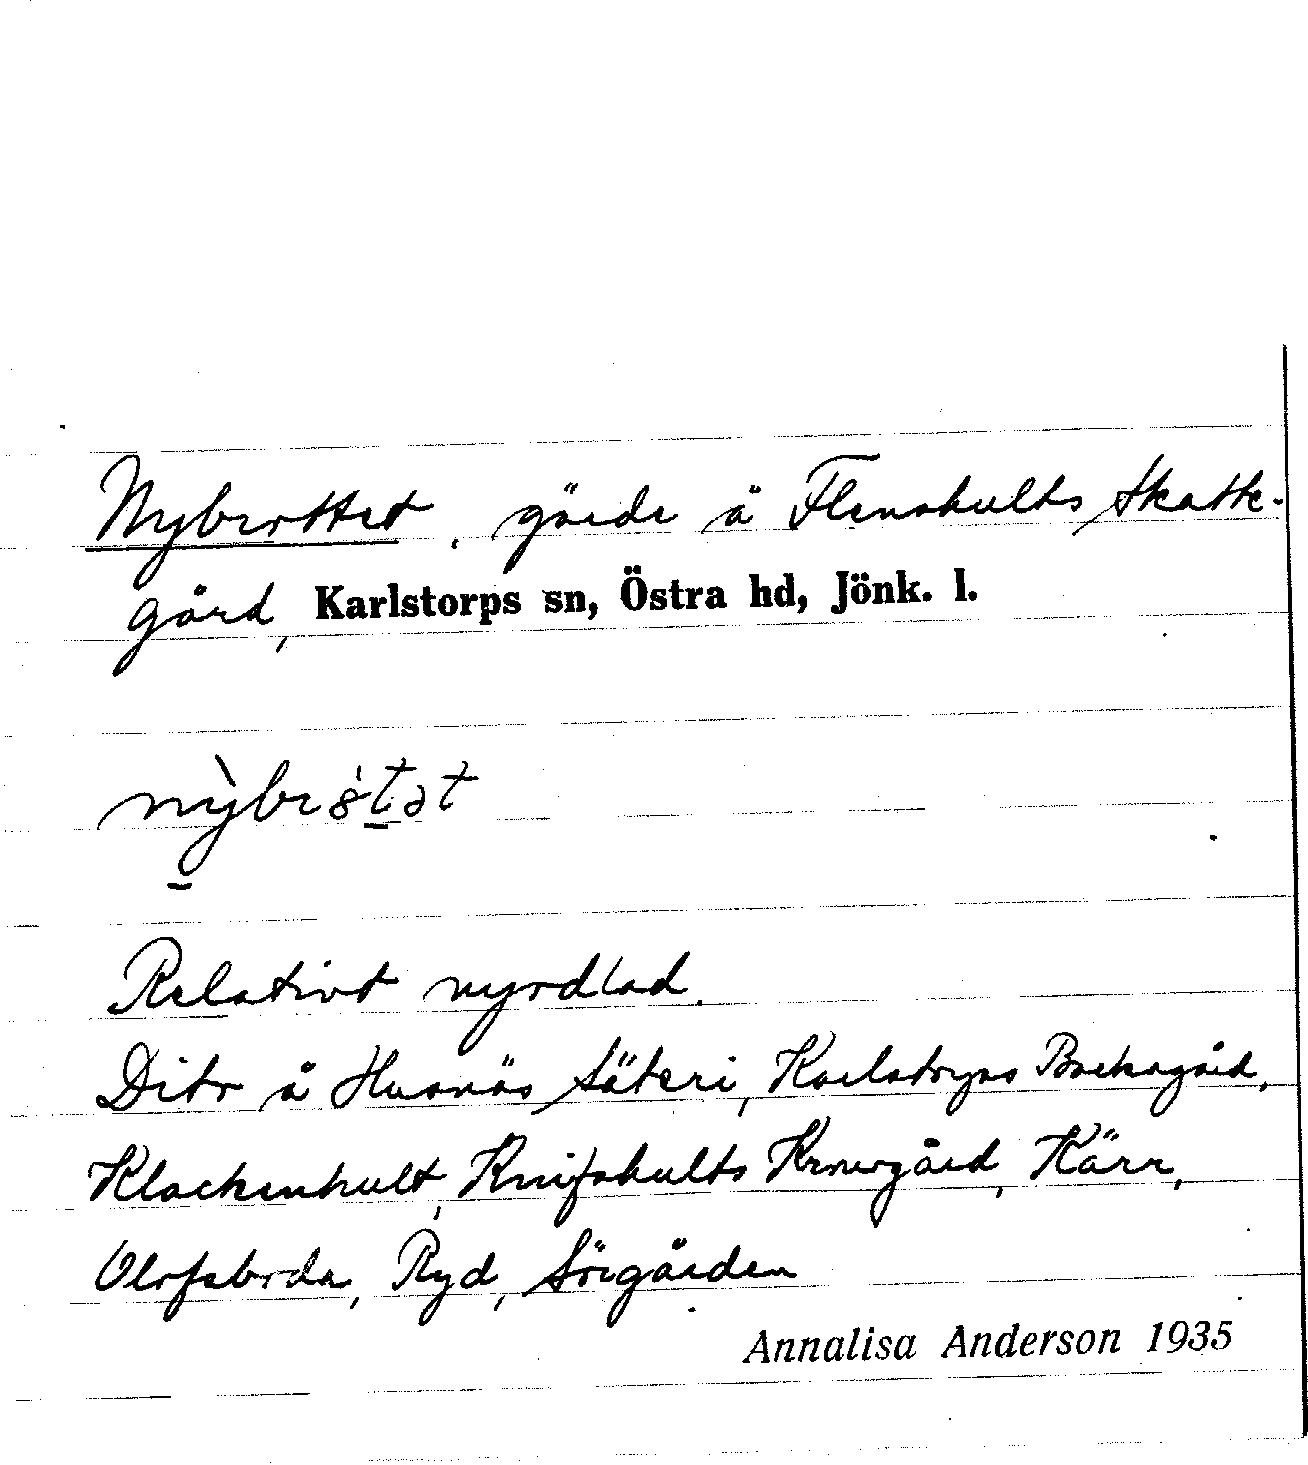 Nybrottet, gärde å Flenshults Skatte-
gård, Karlstorps sn, Östra hd, Jönk. l.
Relativt nyodlad.
Dito å Husnäs Säteri, Karlstorps Backegård,
Klackenhult, Knifshults Kronogård, Kärr,
Olofsboda, Ryd, Sörgården
Annalisa Anderson 1935